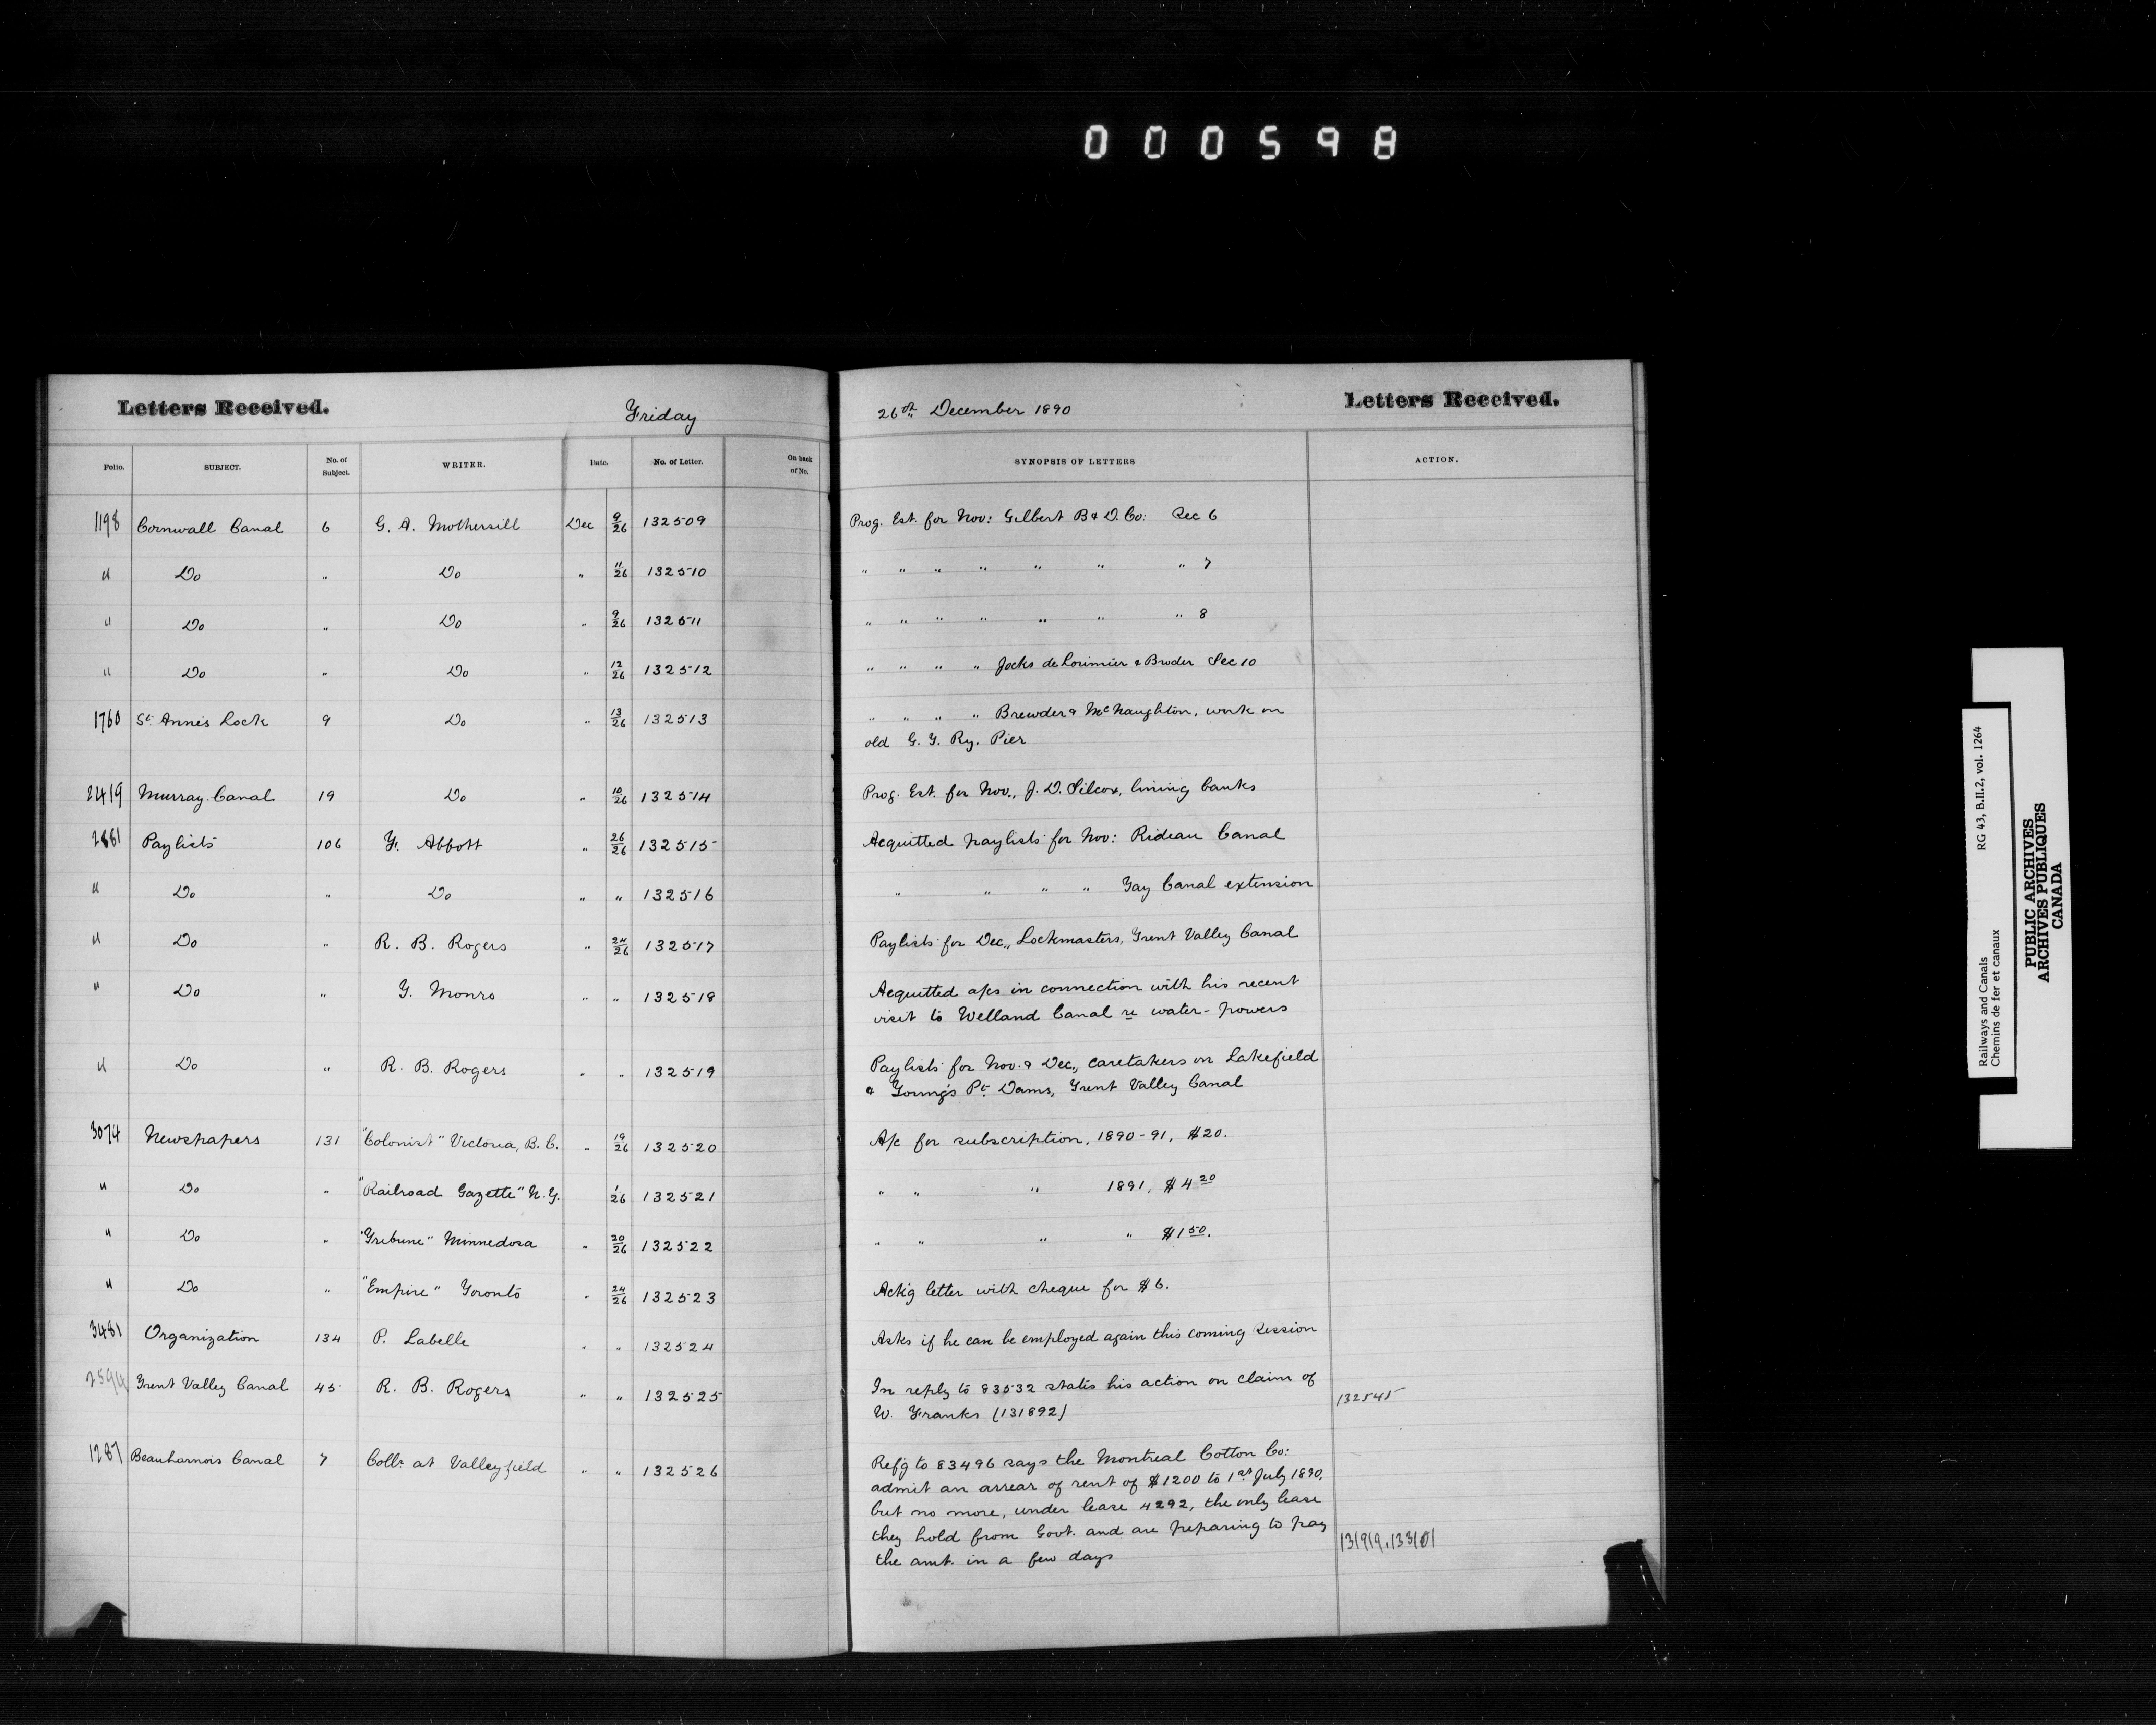 000598
Letters Received. Friday 26th December 1890 Letters Received.
Folio. SUBJECT. No. of Subject. WRITER. Date. No. of Letter. On back of No. SYNOPSIS OF LETTERS ACTION.
1198 Cornwall Canal 6 G. A. Mothersill Dec 9/26 132509 Prog. Est. for Nov: Gilbert B & D. Co: Sec 6
" Do " Do " 11/26 132510 " " " " " " " 7
" Do " Do " 9/26 132511 " " " " " " " 8
" Do " Do " 12/26 132512 " " " " Jocks de Lorimier & Broder Sec 10
1760 St. Anne's Lock 9 Do " 13/26 132513 " " " " Brewder & McNaughton, work on
old G. T. Ry. Pier
2419 Murray Canal 19 Do " 10/26 132514 Prog. Est. for Nov., J. D. Silcox, lining banks
2881 Paylists 106 F. Abbott " 26/26 132515 Acquitted paylists for Nov: Rideau Canal
" Do " Do " " 132516 " " " " Tay Canal extension
" Do " R. B. Rogers " 24/26 132517 Paylists for Dec., Lockmasters, Trent Valley Canal
" Do " T. Monro " " 132518 Acquitted a/cs in connection with his recent
visit to Welland Canal re water-powers
" Do " R. B. Rogers " " 132519 Paylists for Nov. & Dec., caretakers on Lakefield
& Young's Pt. Dams, Trent Valley Canal
3074 Newspapers 131 "Colonist" Victoria, B. C. " 19/26 132520 A/c for subscription, 1890-91, $20.
" Do " "Railroad Gazette" N. Y. 1/26 132521 " " " 1891, $4 20
" Do " "Tribune" Minnedosa " 20/26 132522 " " " " $1 50.
" Do " "Empire" Toronto " 24/26 132523 Ackg letter with cheque for $6.
3481 Organization 134 P. Labelle " " 132524 Asks if he can be employed again this coming Session
2594 Trent Valley Canal 45 R. B. Rogers " " 132525 In reply to 83532 states his action on claim of
W. Franks (131892) 132545
1287 Beauharnois Canal 7 Collr. at Valleyfield " " 132526 Refg to 83496 says the Montreal Cotton Co:
admit an arrear of rent of $1200 to 1st July 1890,
but no more, under lease 4292, the only lease
they hold from Govt. and are preparing to pay 131919.133101
the amt. in a few days
Railways and Canals RG 43, B.II.2, vol. 1264
Chemins de fer et canaux
PUBLIC ARCHIVES
ARCHIVES PUBLIQUES
CANADA